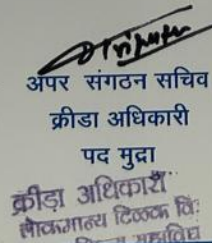 अपर संगठन सचिव
क्रीडा अधिकारी
पद मुद्रा
क्रीड़ा अधिकारी
लोकमान्य टिळक वि.